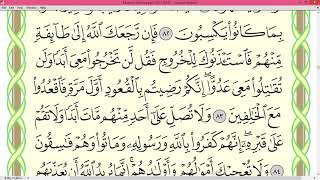 بِمَا كَانُوا۟ يَكْسِبُونَ ٨٢ فَإِن رَّجَعَكَ ٱللَّهُ إِلَىٰ طَآئِفَةٍ
مِّنْهُمْ فَٱسْتَـْٔذَنُوكَ لِلْخُرُوجِ فَقُل لَّن تَخْرُجُوا۟ مَعِىَ أَبَدًا وَلَن
تُقَـٰتِلُوا۟ مَعِىَ عَدُوًّا ۖ إِنَّكُمْ رَضِيتُم بِٱلْقُعُودِ أَوَّلَ مَرَّةٍ فَٱقْعُدُوا۟
مَعَ ٱلْخَـٰلِفِينَ ٨٣ وَلَا تُصَلِّ عَلَىٰٓ أَحَدٍ مِّنْهُم مَّاتَ أَبَدًا وَلَا تَقُمْ
عَلَىٰ قَبْرِهِۦٓ ۖ إِنَّهُمْ كَفَرُوا۟ بِٱللَّهِ وَرَسُولِهِۦ وَمَاتُوا۟ وَهُمْ فَـٰسِقُونَ
٨٤ وَلَا تُعْجِبْكَ أَمْوَٰلُهُمْ وَأَوْلَـٰدُهُمْ ۚ إِنَّمَا يُرِيدُ ٱللَّهُ أَن يُعَذِّبَهُم